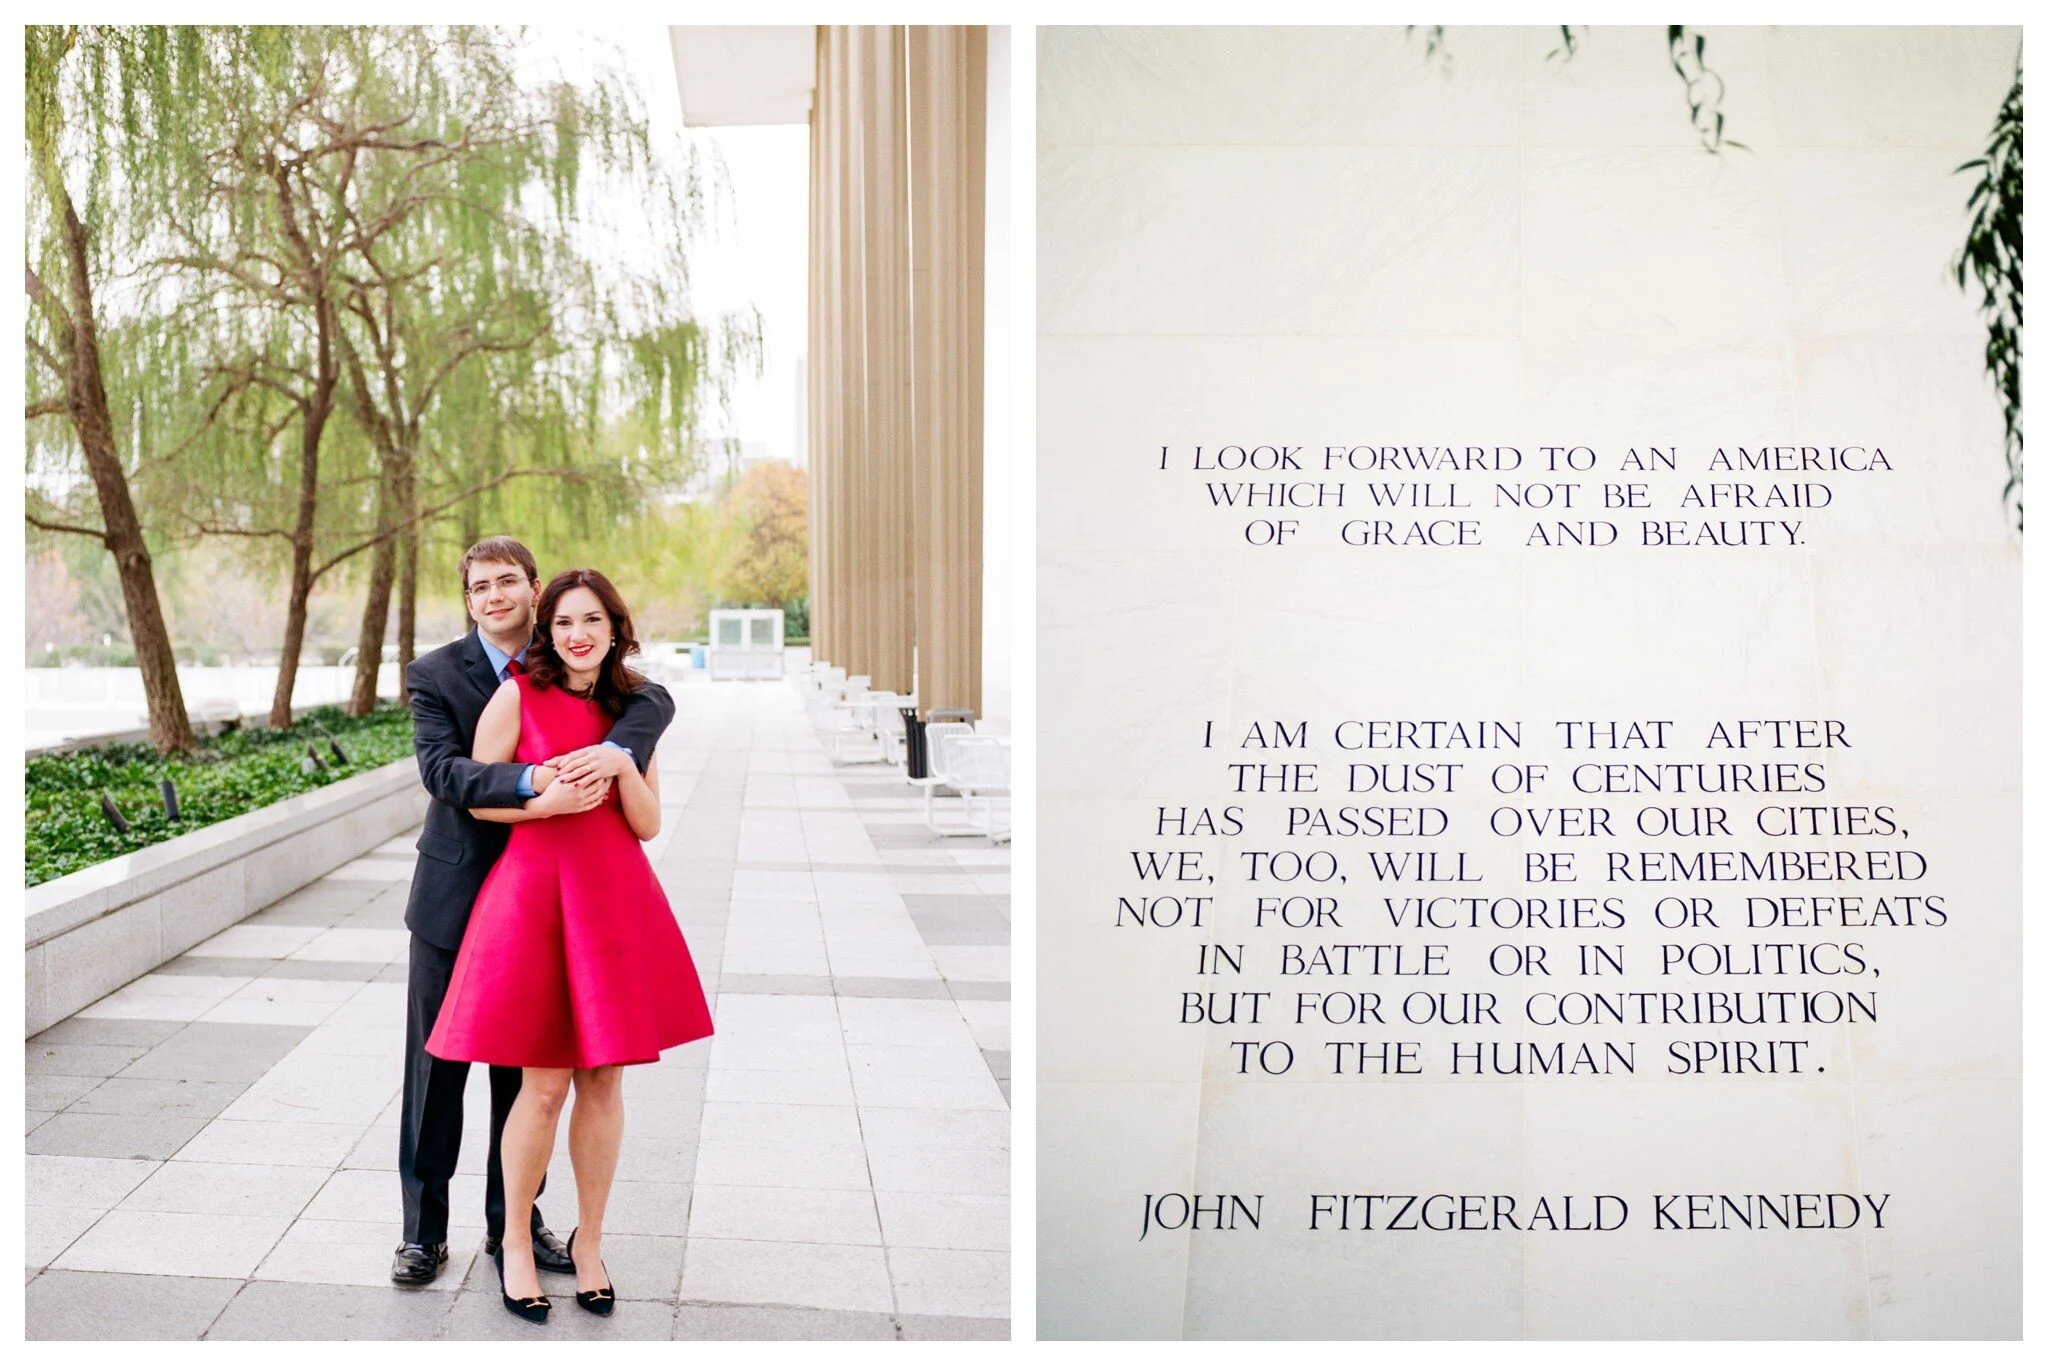 I LOOK FORWARD TO AN AMERICA
WHICH WILL NOT BE AFRAID
OF GRACE AND BEAUTY.
I AM CERTAIN THAT AFTER
THE DUST OF CENTURIES
HAS PASSED OVER OUR CITIES,
WE, TOO, WILL BE REMEMBERED
NOT FOR VICTORIES OR DEFEATS
IN BATTLE OR IN POLITICS,
BUT FOR OUR CONTRIBUTION
TO THE HUMAN SPIRIT.
JOHN FITZGERALD KENNEDY